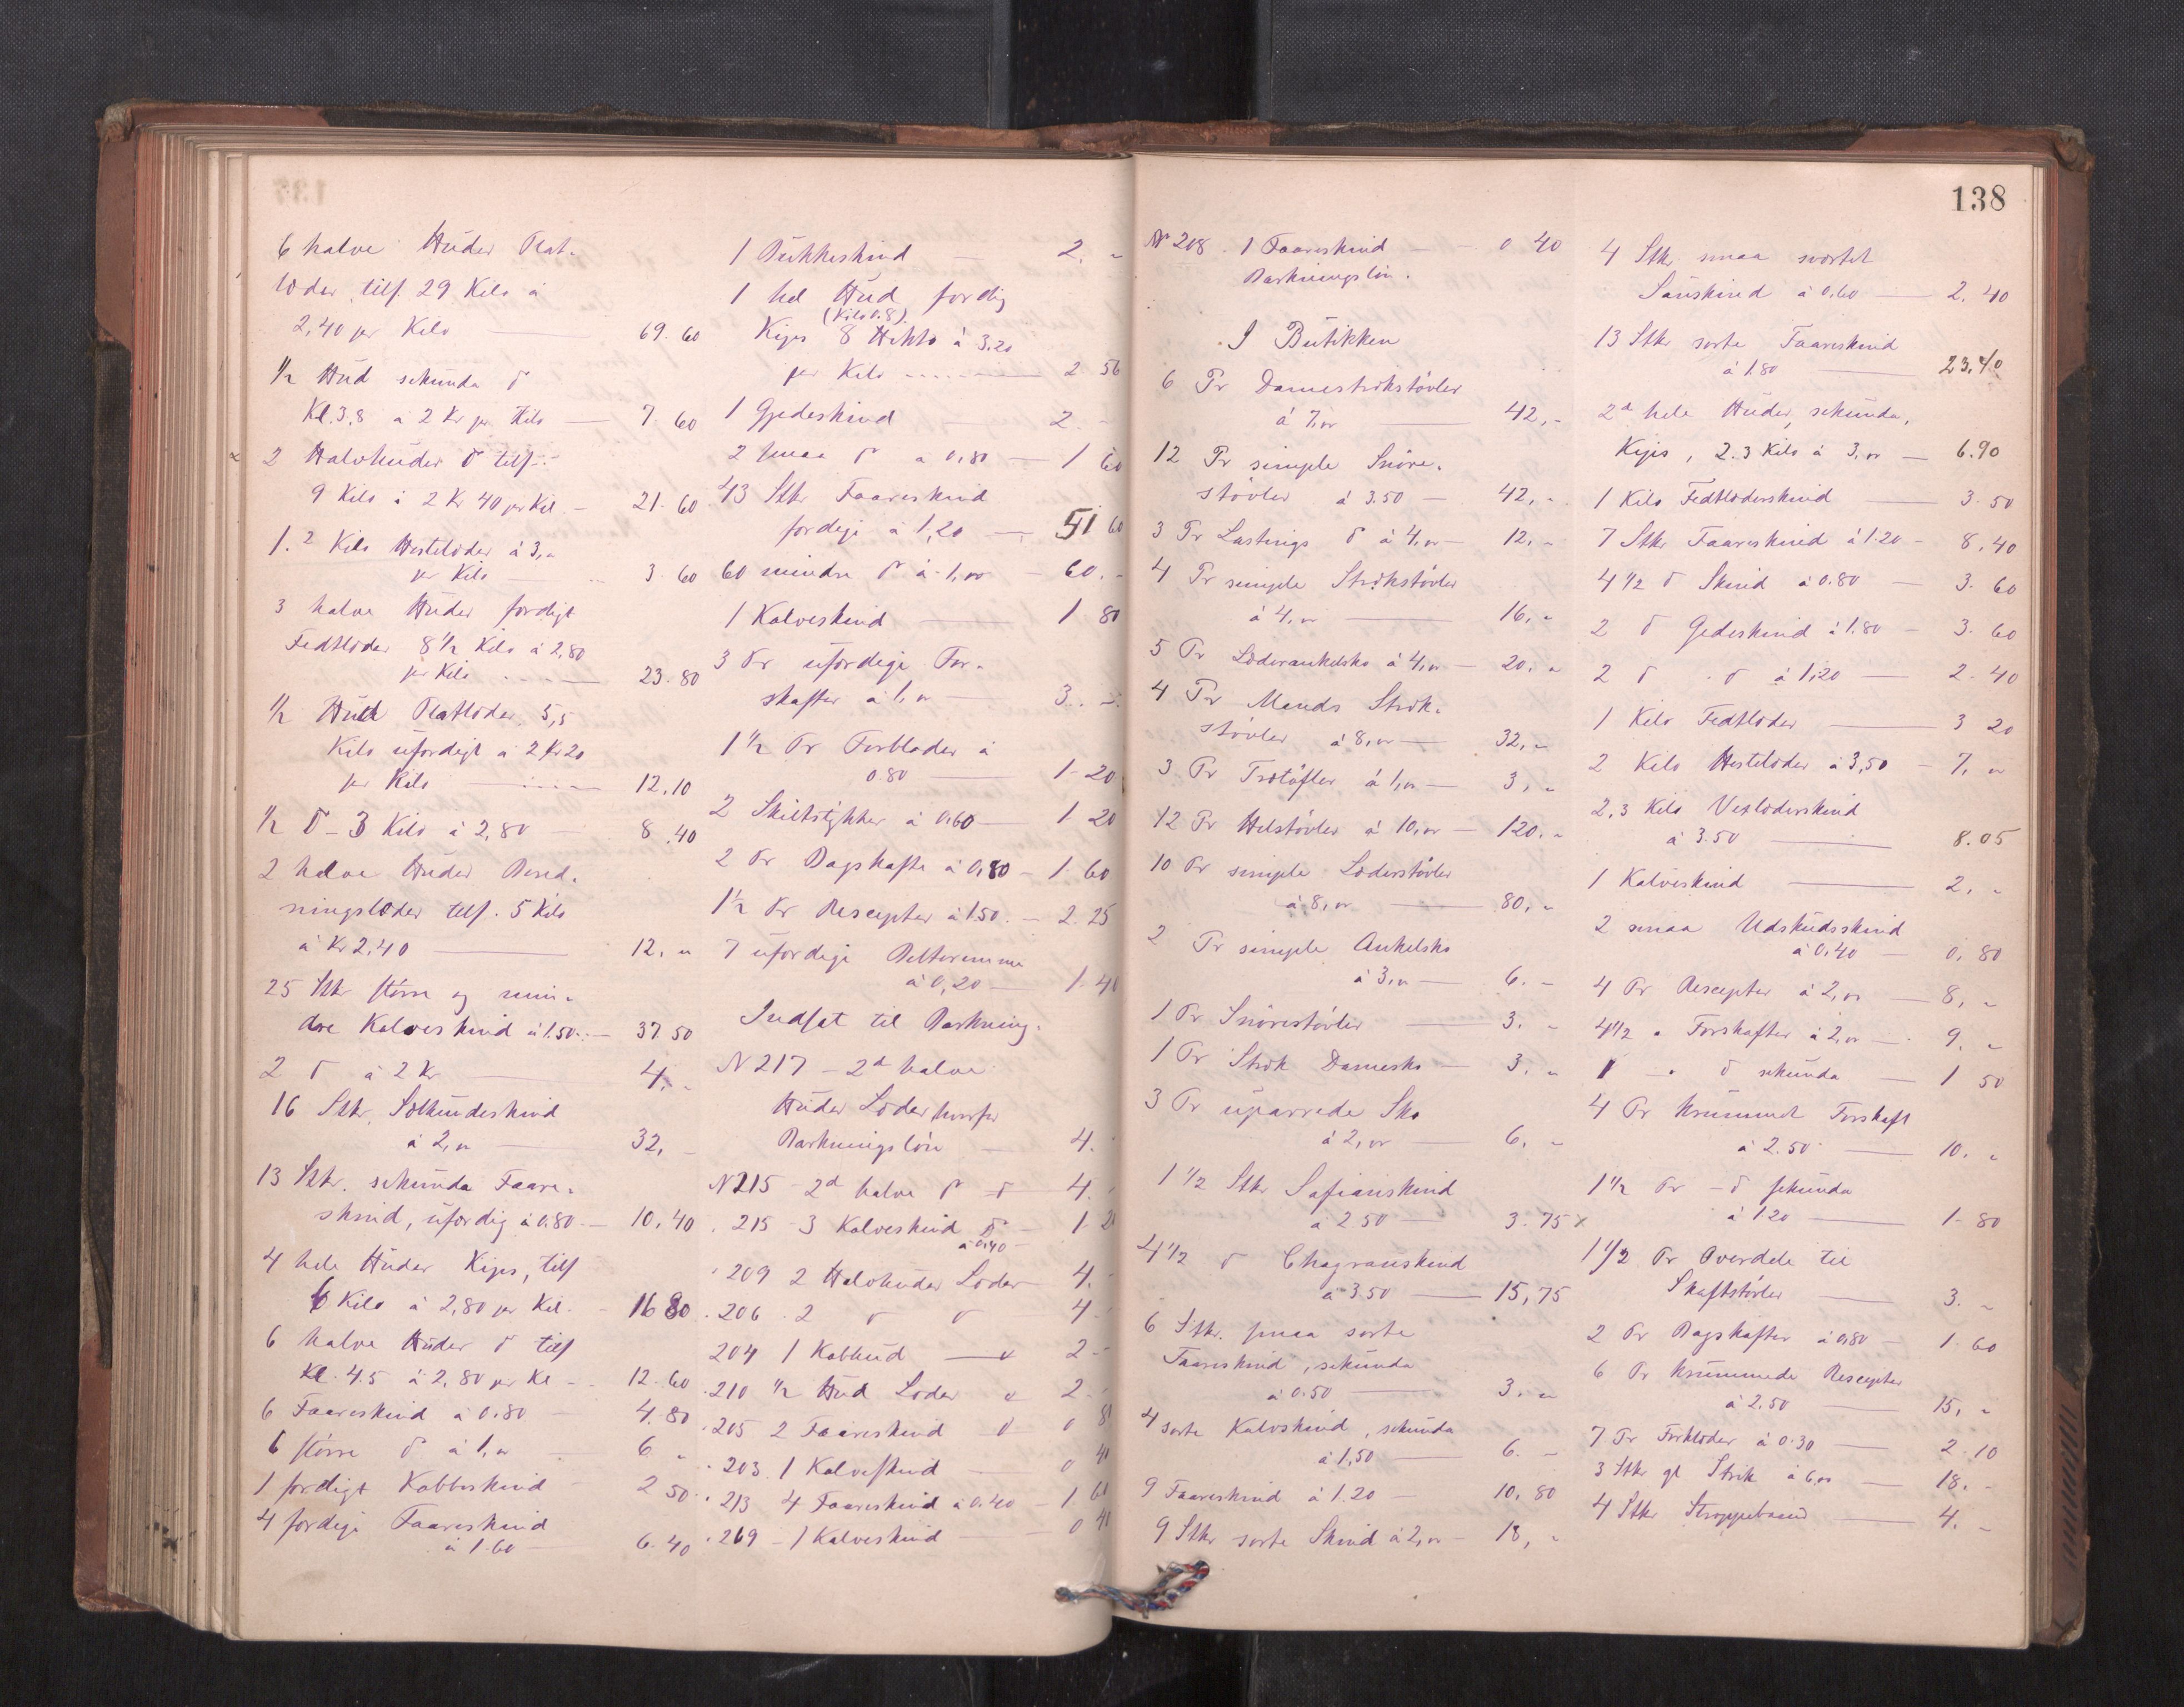 6 halve Huder Plat-
læder tilf. 29 Kilo à
2,40 pr Kilo — 69.60
1/2 Hud sekunda d
Kl. 3,8 a 2 Kr pr Kilo — 7.60
2 Halvhuder d tils.
9 Kilo à 2 Kr 40 pr Kil. — 21.60
1.2 Kilo Hestelæder à 3,„
pr Kilo 3.60
3 halve Huder færdigt
Fedtlæder 8 1/2 Kilo à 2,80
pr Kilo — 23.80
1/2 Hud Platlæder, 5,5
Kilo ufærdigt à 2 Kr 20
pr Kilo — 12.10
1/2 d – 3 Kilo à 2,80 8.40
2 halve Huder Bered-
ningslæder tilf. 5 Kilo
à Kr 2,40 — 12, „
25 Stkr større og min-
dre Kalveskind à 1.50 — 37.50
2 d à 2 Kr — 4. „
16 Stkr. Sælhundeskind
à 2, „ — 32, „
13 Stkr. sekunda Faare-
skind, ufærdig à 0.80 — 10,40
4 hele Huder Kips, tilf
6 Kilo à 2,80 pr Kil. — 16 80
6 halve Huder d tilf
Kl. 4.5 à 2,80 pr Kl — 12.60
6 Faareskind à 0.80 — 4.80
6 større d à 1, „ 6 „
1 færdigt Kobbeskind — 2 50
4 færdige Faareskind
à 1.60 — 6.40
1 Bukkeskind — 2. „
1 hel Hud færdig
(Kilo 0.8)
Kips 8 Hekto à 3.20
pr Kilo — 2 56
1 Gjedeskind 2. „
2 smaa d a 0,80 — 1 60
43 Stkr Faareskind
færdige à 1,20 — 51 60
60 mindre d à 1,00 — 60. „
1 Kalveskind — 1 80
3 Pr ufærdige For-
skafter à 1, „ — 3. „
1 1/2 Pr Forblader à
0.80 — 1.20
2 Skiltstykker à 0.60 — 1 20
2 Pr Bagskafte à 0,80 — 1.60
1 1/2 Pr Rescepter à 1.50. — 2.25
7 ufærdige Belteremme
à 0,20 — 1.40
Indsat til Barkning.
N 217 – 2d halve
Huder Læder hvorfor
Barkningsløn — 4.
N 215 – 2d halve d d 4.
215 – 3 Kalveskind d — 1.2
à 0,40
209 2 Halvhuder Læder — 4.
206. 2 d d 4
204 1 Kobhud — „ 2
210 1/2 Hud Læder „ 2.
205 2 Faareskind d 0 8
203. 1 Kalveskind — 0 4
213 4 Faareskind à 0.40 — 1 6
269 – 1 Kalveskind — 0 4
138
№ 208. 1 Faareskind — 0 40
Barkningsløn.
I Butikken
6 Pr Damestrikstøvler
à 7, „ — 42, „
12 Pr simple Snøre-
støvler à 3.50 — 42, „
3 Pr Lastings d à 4, „ — 12, „
4 Pr simple Strikstøvler
à 4, „ — 16, „
5 Pr Læderankelsko à 4, „ — 20, „
4 Pr Mands Strik-
støvler à 8, „ — 32, „
3 Pr Trætøfler à 1, „ — 3, „
12 Pr Helstøvler à 10, „ — 120. „
10 Pr simple Læderstøvler
à 8, „ — 80, „
2 Pr simple Ankelsko
à 3, „ — 6. „
1 Pr Snørestøvler — 3. „
1 Pr Strik Damesko — 3. „
3 Pr uparrede Sko
à 2, „ — 6, „
1 1/2 Stkr Safianskind
à 2.50 — 3.75 x
4 1/2 d Chagranskind
à 3.50 — 15,75
6 Stkr. smaa sorte
Faareskind, sekunda
à 0.50 — 3. „
4 sorte Kalvskind, sekunda
à 1,50 — 6. „
9 Faareskind à 1.20 — 10,80
9 Stkr sorte Skind à 2, „ — 18, „
4 Stkr smaa svartet
Sauskind à 0,60 — 2.40
13 Stkr sorte Faareskind
à 1.80 — 23,40
2d hele Huder, sekunda,
Kips, 2.3 Kilo à 3, „ — 6.90
1 Kilo Fedtlæderskind — 3.50
7 Stkr Faareskind à 1.20 — 8,40
4 1/2 d Skind à 0.80 — 3.60
2 d Gedeskind à 1.80 — 3.60
2 d d à 1,20 — 2.40
1 Kilo Fedtlæder — 3 20
2 Kilo Hestelæder à 3,50 — 7, „
2,3 Kilo Vexlæderskind
à 3.50 — 8.05
1 Kalveskind — 2, „
2 smaa Udskudsskind
à 0,40 — 0,80
4 Pr Rescepter à 2, „ — 8, „
4 1/2 „ Forskafter à 2, „ — 9. „
1 „ d sekunda — 1 50
4 Pr krummet Forskaft
à 2.50 — 10. „
1 1/2 Pr – d sekunda
à 1.20 — 1.80
1 1/2 Pr Overdele til
Skaftstøvler — 3. „
2 Pr Bagskafter à 0,80 — 1.60
6 Pr krummede Rescepter
à 2.50 — 15, „
7 Pr Forklæder à 0.30 — 2.10
3 Stkr gl Strik à 6, „ — 18. „
4 Stkr Stroppebaand — 4. „